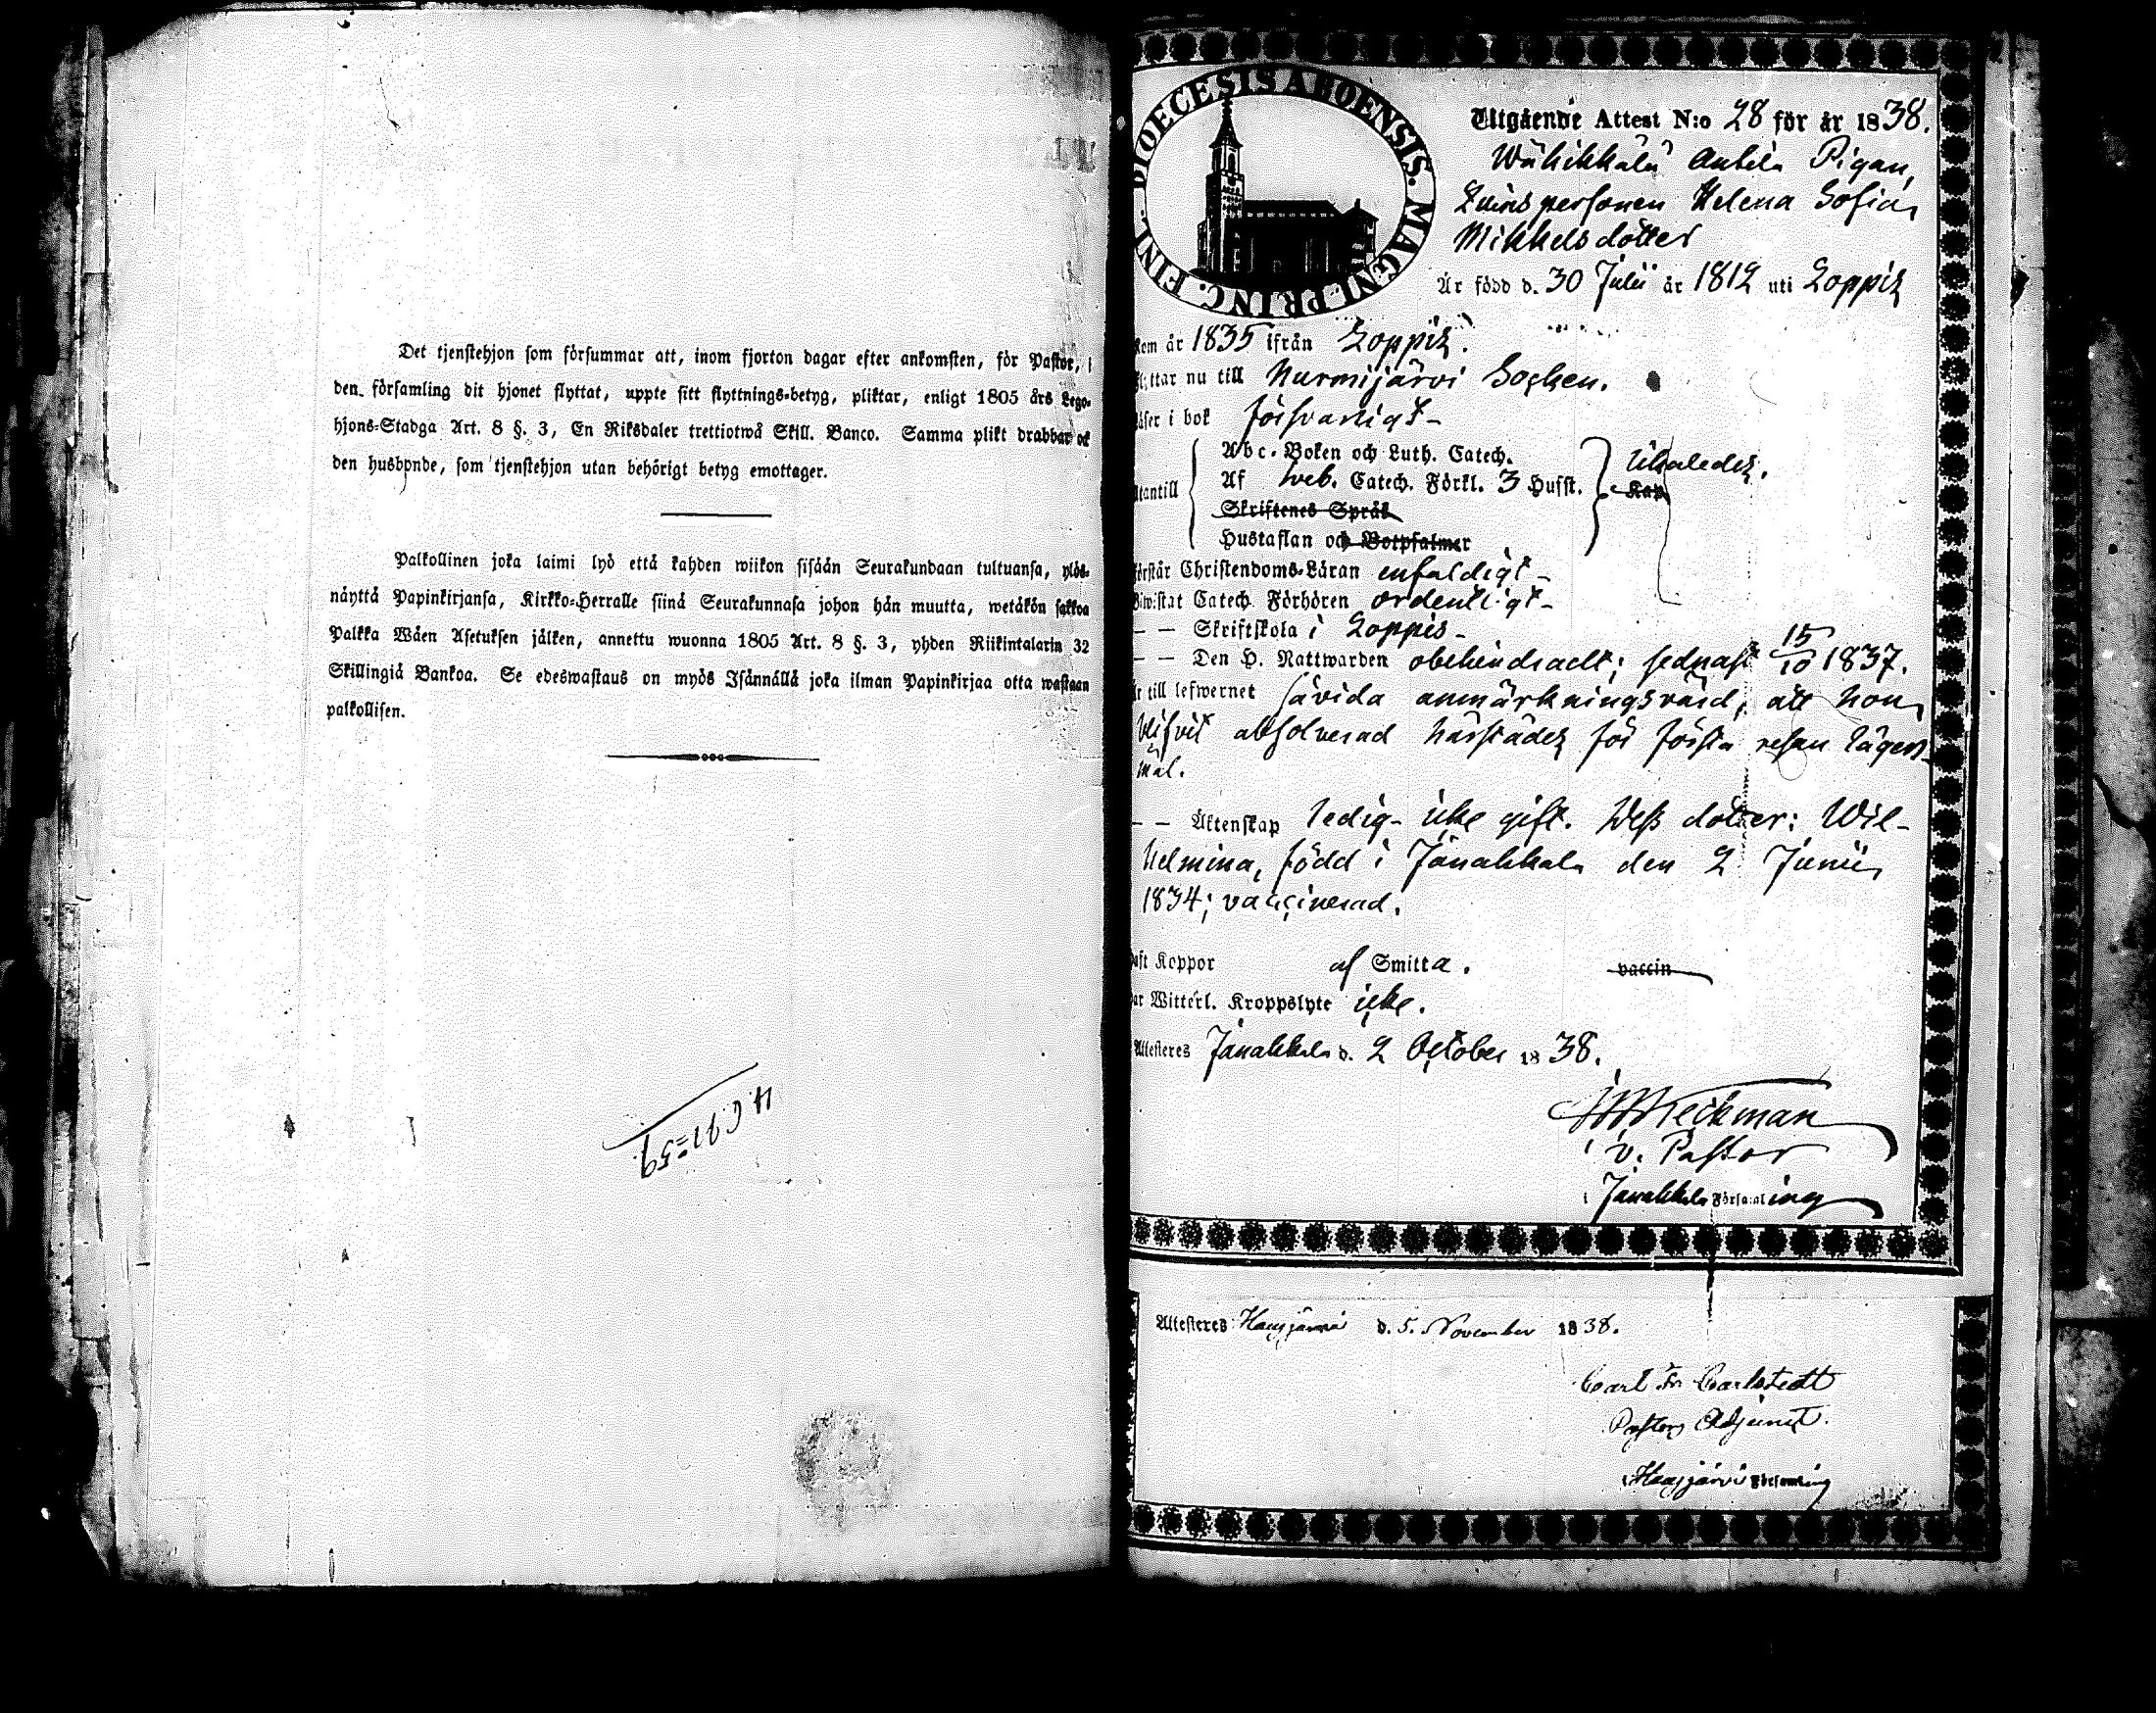 Det tjenstehjon som försummar att, inom fjorton dagar efter ankomsten, för Pastor, i
den församling dit hjonet flyttat, uppte sitt flyttnings-betyg, pliktar, enligt 1805 års Lego-
hjons-Stadga Art. 8 §. 3, En Riksdaler trettiotwå Skill. Banco. Samma plikt drabbar ock
den husbonde, som tjenstehjon utan behörigt betyg emottager.
Palkollinen joka laimi lyö että kahden wiikon sisään Seurakundaan tultuansa, ylös-
näyttä Papinkirjansa, Kirkko-Herralle siinä Seurakunnasa johon hän muutta, wetäkön sakkoa
Palkka Wäen Asetuksen jälken, annettu wuonna 1805 Art. 8 §. 3, yhden Riikintalarin 32
Skillingiä Bankoa. Se edeswastaus on myös Isännällä joka ilman Papinkirjaa otta wastaan
palkollisen.
DIOECESIS ABOENSIS. MAGNI PRINC. FINL.
Utgående Attest N:o 28 för år 1838.
Wähikkälä Anttila Pigan,
Qvinspersonen Helena Sofia
Mikkelsdotter
Är född d. 30 Julii år 1812 uti Loppis
kom år 1835 ifrån Loppis.
Flyttar nu till Nurmijärvi Socken.
Läser i bok försvarligt
Abc-Boken och Luth. Catech.
Utantill Af Sveb. Catech. Förkl. 3 Hufst. Kap
Skriftenes Språk
Hustaflan och Botpsalmer
Förstår Christendoms-Läran enfaldigt
Biwistat Catech. Förhören ordentligt
— — Skriftskola i Loppis
— — Den H. Nattwarden obehindradt; sednast 15/10 1837.
Är till lefwernet såvida anmärkningsvärd, att hon
blifvit absolverad härstädes för första resan lägers-
mål.
— — Äktenskap ledig icke gift. Dess dotter: Wil-
helmina, född i Janakkala den 2 Junii
1834; vaccinerad.
haft Koppor af Smitta. vaccin
Har Witterl. Kroppslyte icke.
Attesteres Janakkala d. 2 October 1838.
Heckman
v. Pastor
i Janakkala Församling
Attesteres Hausjärvi d. 5. November 1838.
Carl Fr Carlstedt
Pastors Adjunct.
i Hausjärvi Församling